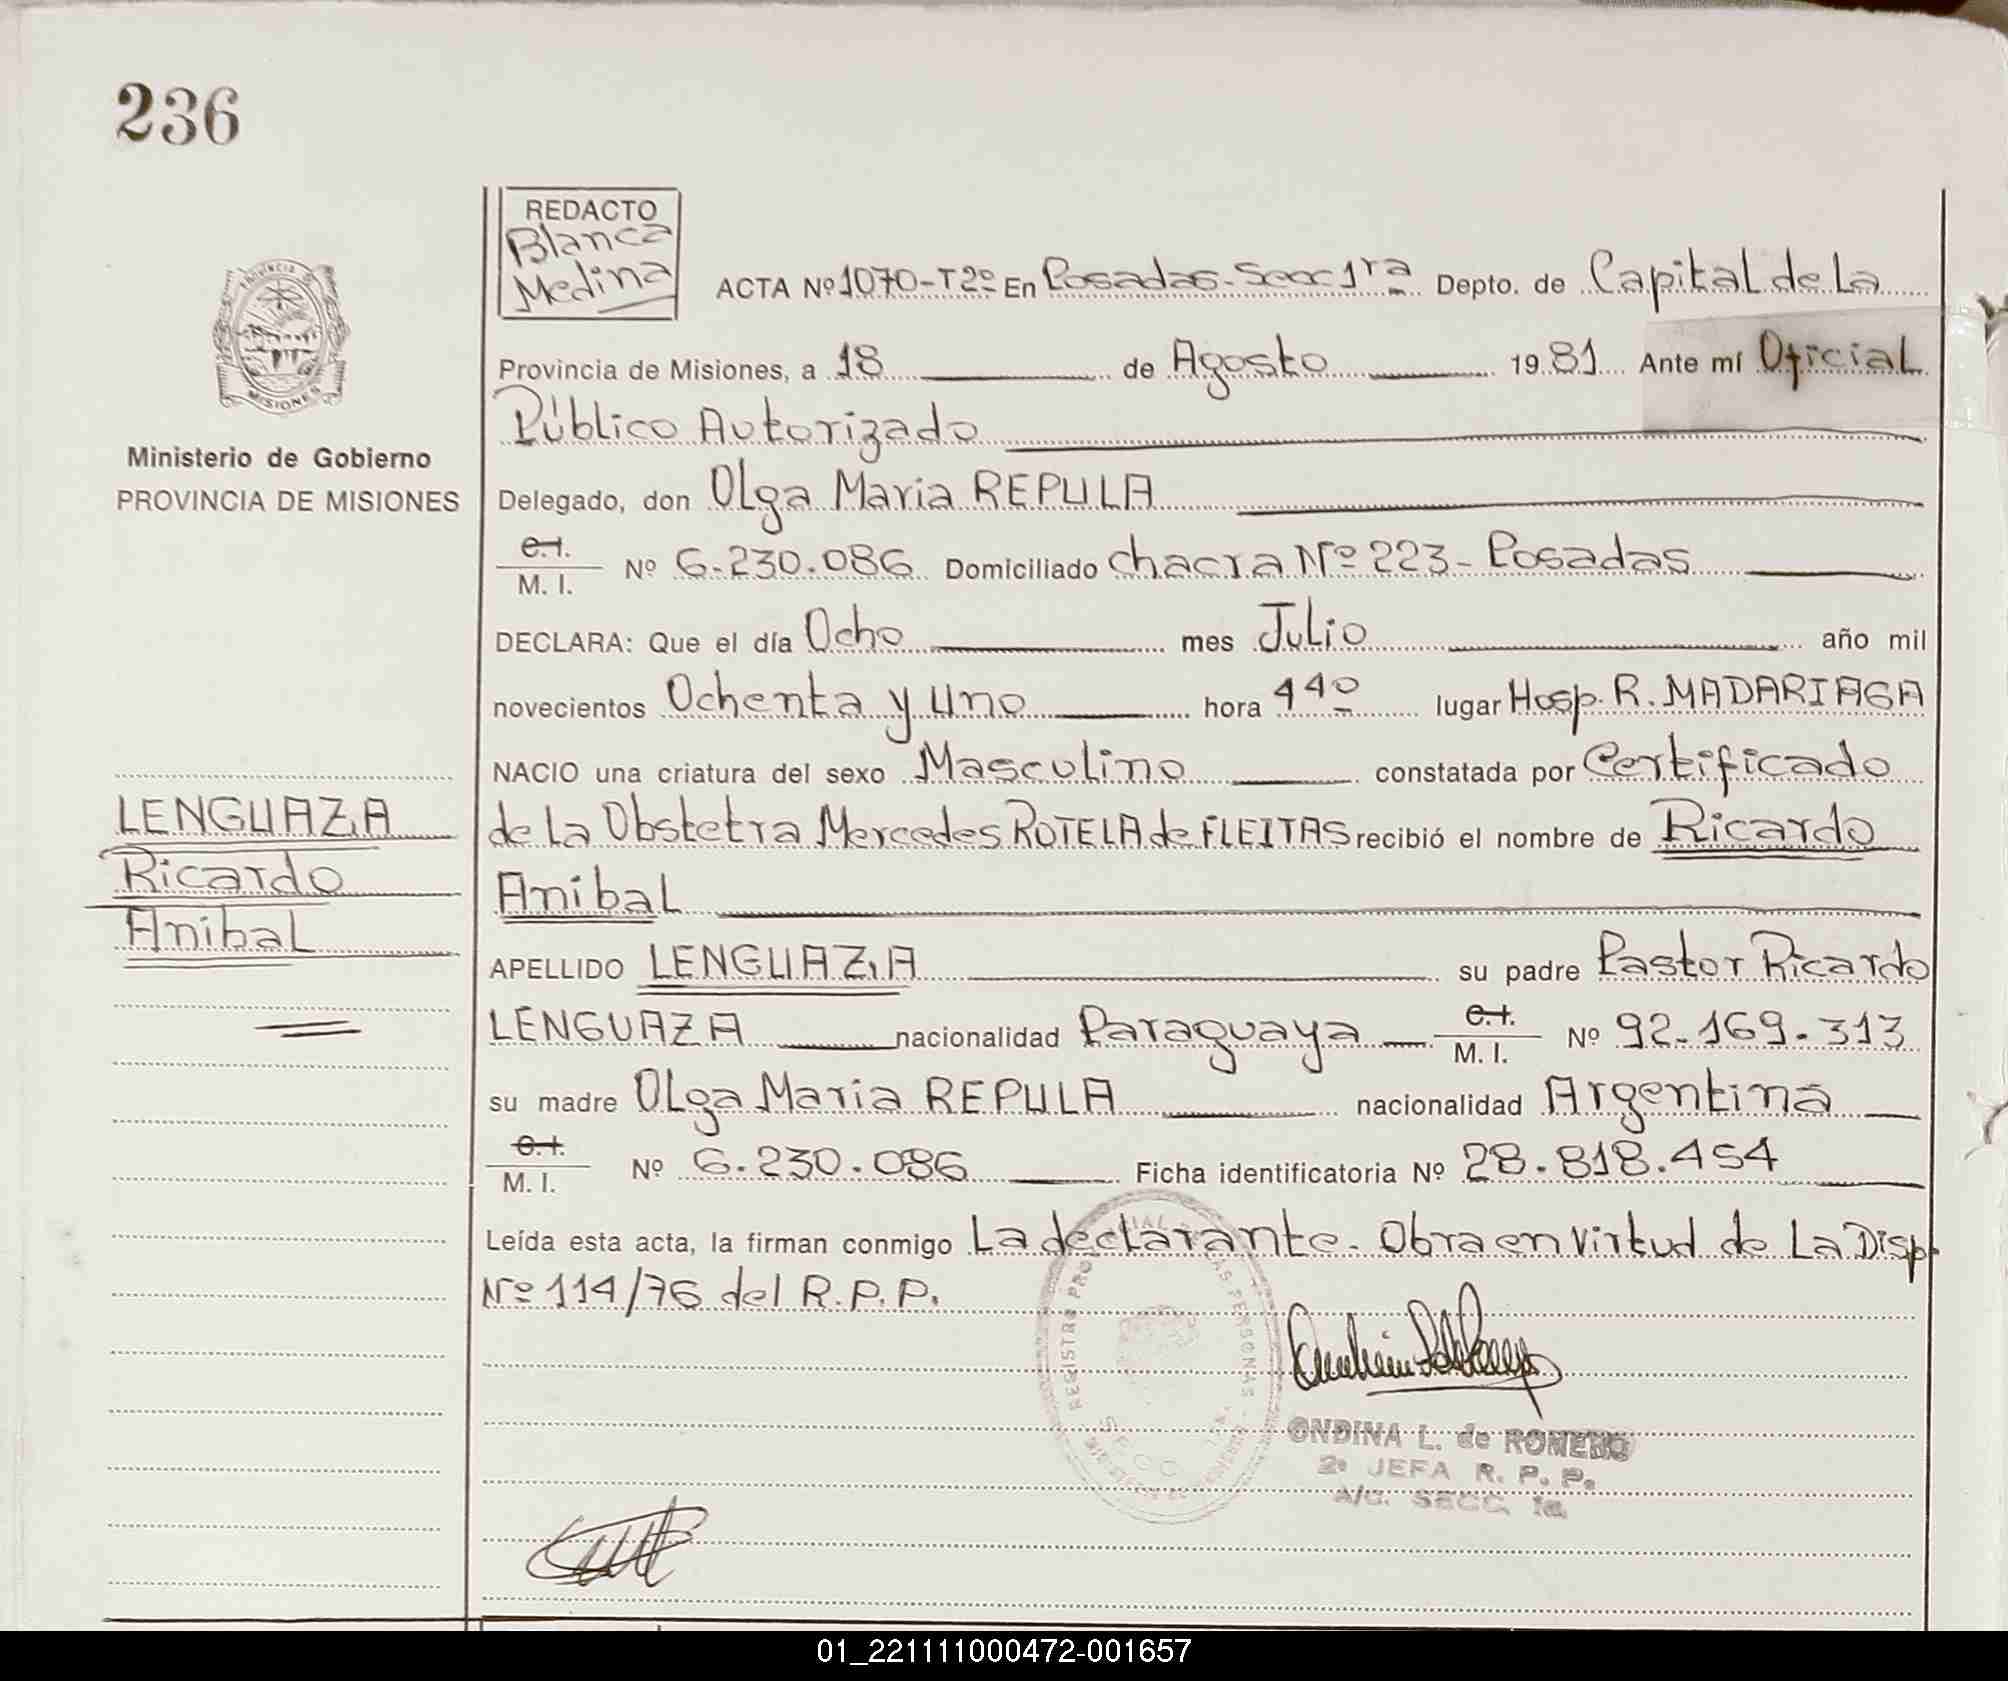 236
REDACTO
Blanca
Medina
ACTA Nº 1070-T2º En Posadas-Secc 1ra Depto. de Capital de La
Provincia de Misiones, a 18 de Agosto 1981 Ante mí Oficial
Público Autorizado
PROVINCIA
MISIONES
Ministerio de Gobierno
PROVINCIA DE MISIONES
Delegado, don Olga Maria REPULA
C.I.
M. I. Nº 6.230.086 Domiciliado chacra Nº 223- Posadas
DECLARA: Que el día Ocho mes Julio año mil
novecientos Ochenta y uno hora 4 40 lugar Hosp. R. MADARIAGA
NACIO una criatura del sexo Masculino constatada por Certificado
de La Obstetra Mercedes ROTELA de FLEITAS recibió el nombre de Ricardo
Anibal
LENGUAZA
Ricardo
Anibal
APELLIDO LENGUAZA su padre Pastor Ricardo
LENGUAZA nacionalidad Paraguaya C.I. M. I. Nº 92-169.313
su madre Olga Maria REPULA nacionalidad Argentina
C.I.
M. I. Nº 6.230.086 Ficha identificatoria Nº 28.818.454
Leída esta acta, la firman conmigo La declarante. Obra en virtud de La Disp.
Nº 114/76 del R.P.P.
REGISTRO PROVINCIAL DE LAS PERSONAS
SECC
ONDINA L. de ROMERO
2º JEFA R. P. P.
A/C. SECC. 1a.
01_221111000472-001657